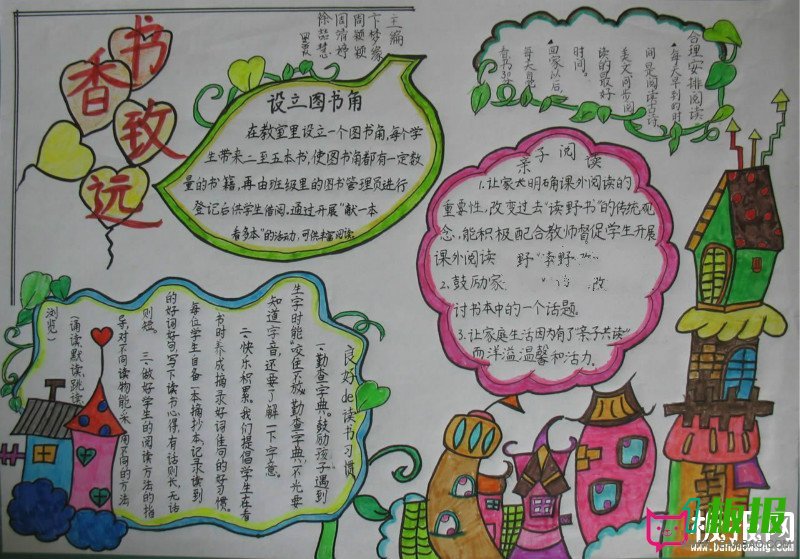 书香致远
主编
卞梦缘
周颖颖
周清婷
徐喆慧
设立图书角
在教室里设立一个图书角,每个学
生带来二至五本书,使图书角都有一定数
量的书籍,再由班级里的图书管理员进行
登记后供学生借阅,通过开展“献一本
看多本”的活动,可供丰富阅读。
合理安排阅读
每天早到的时
间是阅读古诗
美文,间带阅
读的最好
时间。
回家以后,
每天自觉
看书30
亲子阅读
1.让家长明确课外阅读的
重要性,改变过去“读野书”的传统观
念,能积极配合教师督促学生开展
课外阅读
2.鼓励家
讨书本中的一个话题。
3.让家庭生活因为有了“亲子共读”
而洋溢温馨和活力。
良好de读书习惯
一、勤查字典。鼓励孩子遇到
生字时能“咬住不放”,勤查字典,不光要
知道字音,还要了解一下字意。
二、快乐积累。我们提倡学生在看
书时养成摘录好词佳句的好习惯。
每位学生自备一本摘抄本,记录读到
的好词好句,写下读书心得,有话则长,无话
则短。 三、做好学生的阅读方法的指
导,对不同读物能采用不同的方法
(诵读、默读、跳读
浏览)
板报网